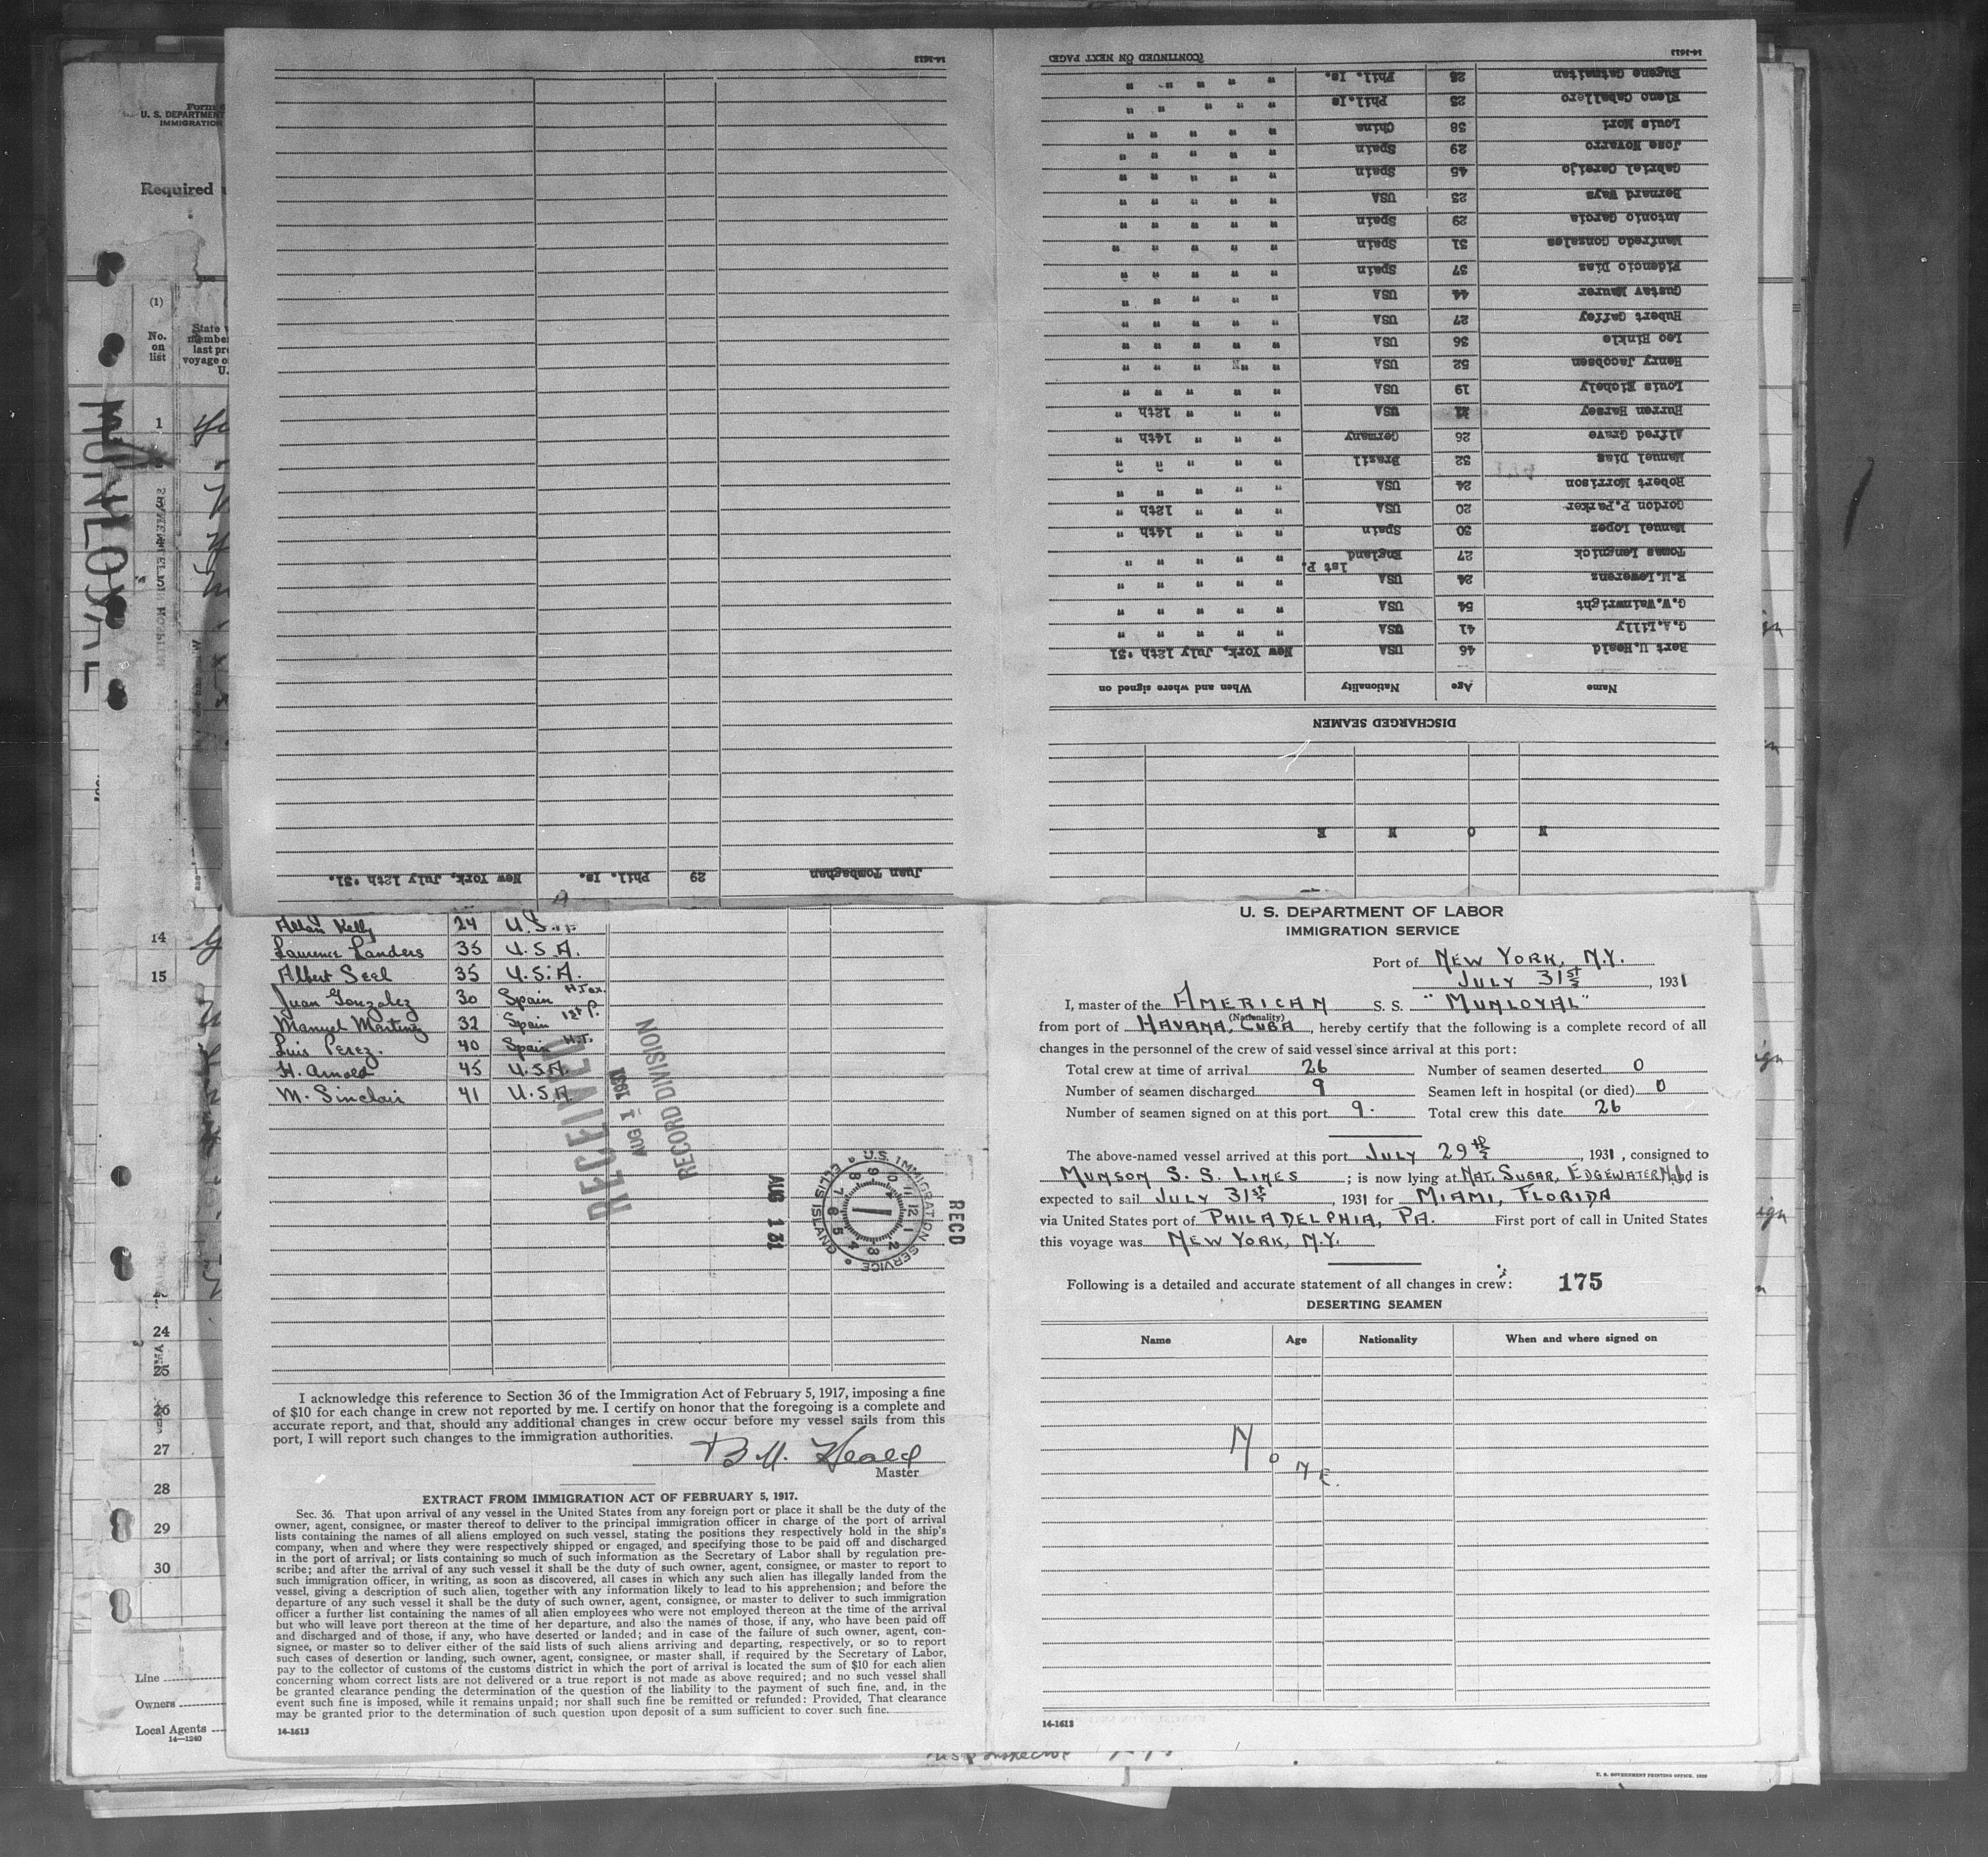 Form
U. S. DEPARTMENT
IMMIGRATION
Required
(1)
No.
on
list
State
member
last
voyage
U.
1
14
15
24
25
26
27
28
29
30
Line
Owners
Local Agents
14—1240
MUNLOYAL
14-1613
Juan Tombaghan 29 Phil. Is. New York, July 12th '31.
N O N E
DISCHARGED SEAMEN
Name Age Nationality When and where signed on
Bert U.Heald 46 USA New York, July 12th '31
G.A.Lilly 41 USA " " " " "
G.W.Wainwright 54 USA " " " " "
R.M.Lewerenz 24 USA " " " " "
1st P.
Tomas Lengnick 27 England " " " " "
Manuel Lopez 30 Spain " " " 14th "
Gordon P.Parker 20 USA " " " 12th "
Robert Morrison 24 USA " " " " "
Manuel Dias 32 Brazil " " " " "
Alfred Grave 26 Germany " " " 14th "
Hurren Harsey USA " " " 12th "
Louis Eighely 19 USA " " " " "
Henry Jacobsen 52 USA " " " " "
Leo Hinkle 36 USA " " " " "
Hubert Gaffey 27 USA " " " " "
Gustav Maurer 44 USA " " " " "
Fidencio Dias 37 Spain " " " " "
Manfredo Gonzales 31 Spain " " " " "
Antonio Garcia 29 Spain " " " " "
Bernard Ways 23 USA " " " " "
Gabriel Careijo 45 Spain " " " " "
Jose Novarro 29 Spain " " " " "
Louis Mori 38 China " " " " "
Eleno Caballero 25 Phil.Is " " " " "
Eugene Gatmaitan 28 Phil. Is. " " " " "
(CONTINUED ON NEXT PAGE)
14-1613
Allan Kelly 24 U.S.A.
Laurence Landers 35 U.S.A.
Albert Seel 35 U.S.A.
Juan Gonzalez 30 Spain H Tax.
Manuel Martinez 32 Spain 1st P.
Luis Perez. 40 Spain H.T.
H. Arnold 45 U.S.A.
M. Sinclair 41 U.S.A
RECEIVED
AUG 1 1931
RECORD DIVISION
AUG 1 31
U.S. IMMIGRATION SERVICE
ELLIS ISLAND
RECD
I acknowledge this reference to Section 36 of the Immigration Act of February 5, 1917, imposing a fine
of $10 for each change in crew not reported by me. I certify on honor that the foregoing is a complete and
accurate report, and that, should any additional changes in crew occur before my vessel sails from this
port, I will report such changes to the immigration authorities.
B. U. Heald
Master
EXTRACT FROM IMMIGRATION ACT OF FEBRUARY 5, 1917.
Sec. 36. That upon arrival of any vessel in the United States from any foreign port or place it shall be the duty of the
owner, agent, consignee, or master thereof to deliver to the principal immigration officer in charge of the port of arrival
lists containing the names of all aliens employed on such vessel, stating the positions they respectively hold in the ship's
company, when and where they were respectively shipped or engaged, and specifying those to be paid off and discharged
in the port of arrival; or lists containing so much of such information as the Secretary of Labor shall by regulation pre-
scribe; and after the arrival of any such vessel it shall be the duty of such owner, agent, consignee, or master to report to
such immigration officer, in writing, as soon as discovered, all cases in which any such alien has illegally landed from the
vessel, giving a description of such alien, together with any information likely to lead to his apprehension; and before the
departure of any such vessel it shall be the duty of such owner, agent, consignee, or master to deliver to such immigration
officer a further list containing the names of all alien employees who were not employed thereon at the time of the arrival
but who will leave port thereon at the time of her departure, and also the names of those, if any, who have been paid off
and discharged and of those, if any, who have deserted or landed; and in case of the failure of such owner, agent, con-
signee, or master so to deliver either of the said lists of such aliens arriving and departing, respectively, or so to report
such cases of desertion or landing, such owner, agent, consignee, or master shall, if required by the Secretary of Labor,
pay to the collector of customs of the customs district in which the port of arrival is located the sum of $10 for each alien
concerning whom correct lists are not delivered or a true report is not made as above required; and no such vessel shall
be granted clearance pending the determination of the question of the liability to the payment of such fine, and, in the
event such fine is imposed, while it remains unpaid; nor shall such fine be remitted or refunded: Provided, That clearance
may be granted prior to the determination of such question upon deposit of a sum sufficient to cover such fine.
14-1613
U. S. DEPARTMENT OF LABOR
IMMIGRATION SERVICE
Port of NEW YORK, N.Y.
JULY 31st, 1931
I, master of the AMERICAN S. S. "MUNLOYAL"
(Nationality)
from port of HAVANA, CUBA, hereby certify that the following is a complete record of all
changes in the personnel of the crew of said vessel since arrival at this port:
Total crew at time of arrival 26 Number of seamen deserted 0
Number of seamen discharged 9 Seamen left in hospital (or died) 0
Number of seamen signed on at this port 9. Total crew this date 26
The above-named vessel arrived at this port JULY 29th, 1931, consigned to
MUNSON S. S. LINES; is now lying at NAT. SUGAR, EDGEWATER N.J. and is
expected to sail JULY 31st, 1931 for MIAMI, FLORIDA
via United States port of PHILADELPHIA, PA. First port of call in United States
this voyage was NEW YORK, N.Y.
Following is a detailed and accurate statement of all changes in crew: 175
DESERTING SEAMEN
Name Age Nationality When and where signed on
NONE.
14-1613
U. S. GOVERNMENT PRINTING OFFICE. 1928